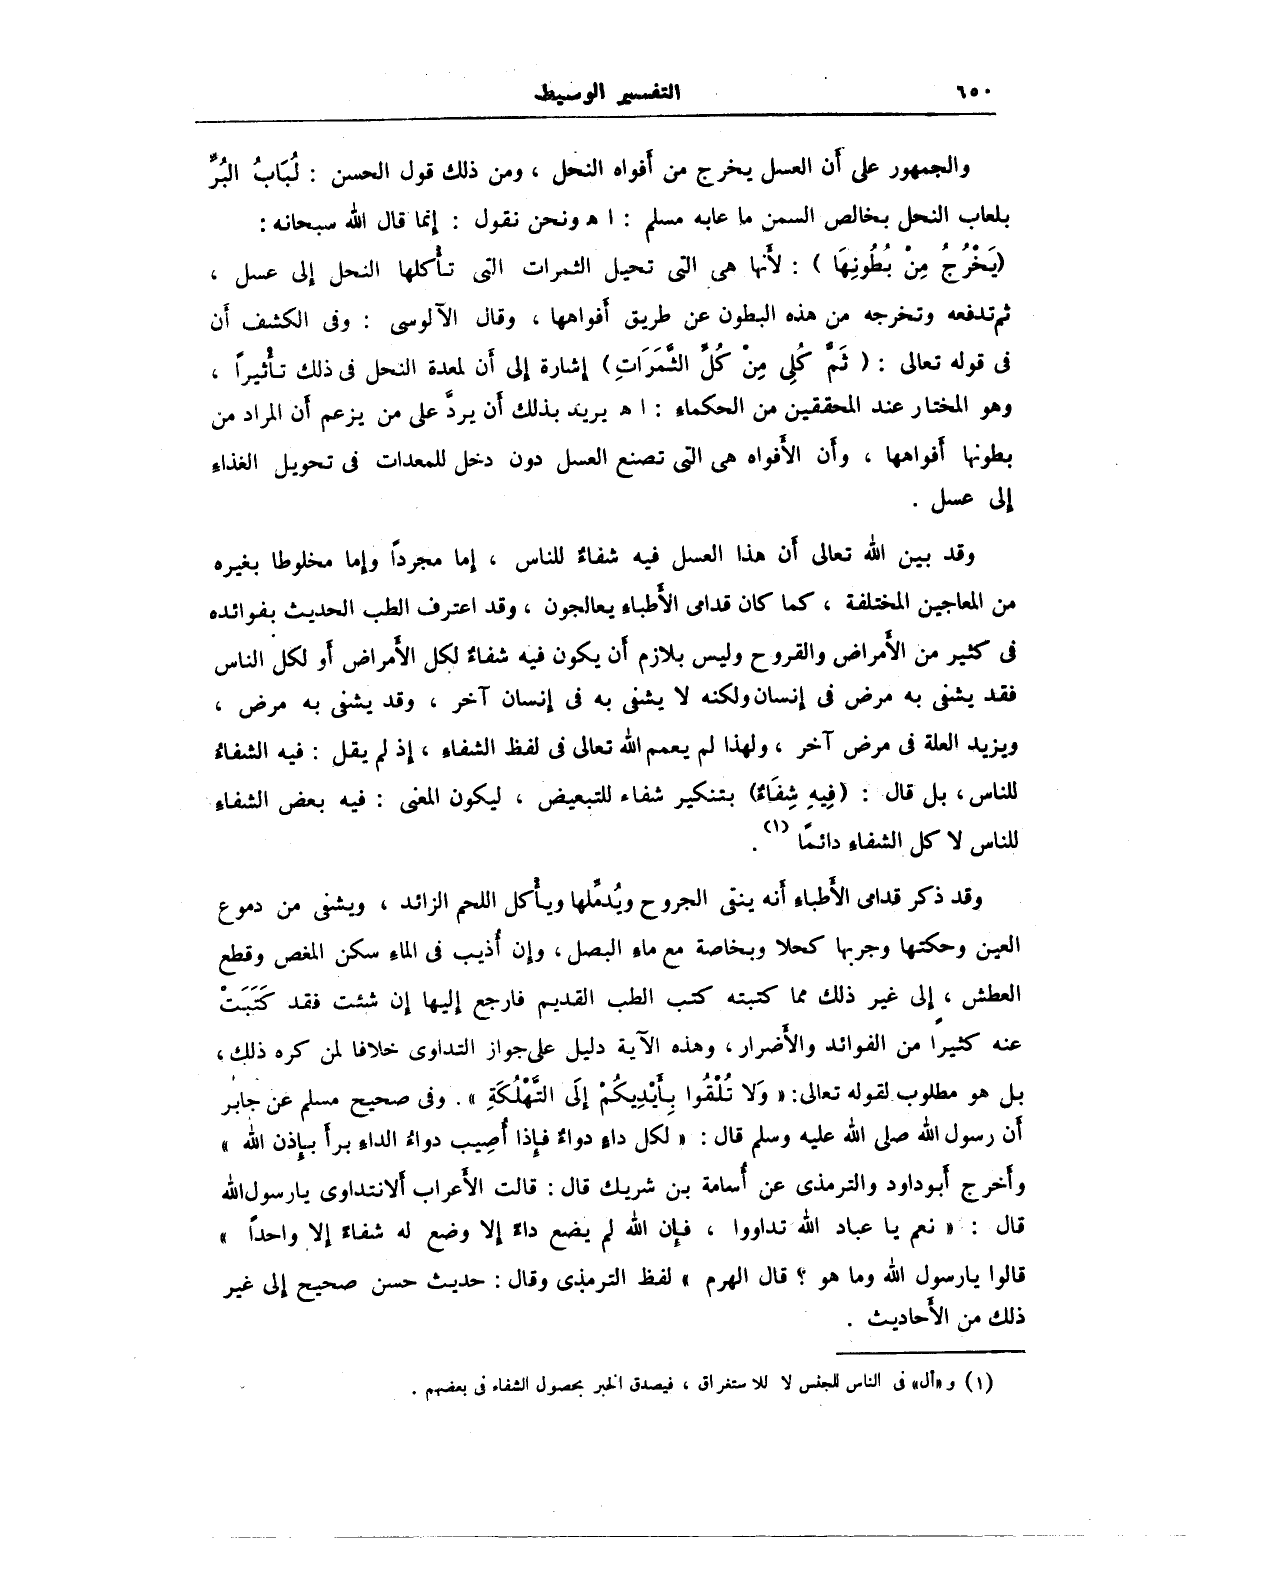 ٦٥٠
التفسير الوسيط
والجمهور على أَن العسل يخرج من أَفواه النحل ، ومن ذلك قول الحسن : لُبَابُ البُرِّ
بلعاب النحل بخالص السمن ما عابه مسلم : ا ه ونحن نقول : إنما قال الله سبحانه :
(يَخْرُجُ مِنْ بُطُونِهَا ) : لأَنها هى التى تحيل الثمرات التى تأْكلها النحل إلى عسل ،
ثم تدفعه وتخرجه من هذه البطون عن طريق أَفواهها ، وقال الآلوسى : وفى الكشف أن
فى قوله تعالى : ( ثُمَّ كُلِى مِنْ كُلِّ الثَّمَرَاتِ) إشارة إلى أن لمعدة النحل فى ذلك تأْثيراً ،
وهو المختار عند المحققين من الحكماء : ا ه يريد بذلك أن يردَّ على من يزعم أن المراد من
بطونها أَفواهها ، وأن الأَفواه هى التى تصنع العسل دون دخل للمعدات فى تحويل الغذاء
إلى عسل .
وقد بين الله تعالى أَن هذا العسل فيه شفاءٌ للناس ، إما مجرداً وإما مخلوطا بغيره
من المعاجين المختلفة ، كما كان قدامى الأَطباء يعالجون ، وقد اعترف الطب الحديث بفوائده
فى كثير من الأَمراض والقروح وليس بلازم أَن يكون فيه شفاءٌ لكل الأَمراض أَو لكل الناس
فقد يشفى به مرض فى إنسان ولكنه لا يشفى به فى إنسان آخر ، وقد يشفى به مرض ،
ويزيد العلة فى مرض آخر ، ولهذا لم يعمم الله تعالى فى لفظ الشفاء ، إذ لم يقل : فيه الشفاءُ
للناس ، بل قال : (فِيهِ شِفَاءٌ) بتنكير شفاء للتبعيض ، ليكون المعنى : فيه بعض الشفاءِ
للناس لا كل الشفاء دائمًا (١) .
وقد ذكر قدامى الأَطباء أَنه ينقى الجروح ويُدمِّلها ويأْكل اللحم الزائد ، ويشفى من دموع
العين وحكتها وجربها كحلا وبخاصة مع ماء البصل ، وإن أُذيب فى الماءِ سكن المغص وقطع
العطش ، إلى غير ذلك مما كتبته كتب الطب القديم فارجع إليها إن شئت فقد كَتَبَتْ
عنه كثيرًا من الفوائد والأَضرار ، وهذه الآية دليل على جواز التداوى خلافا لمن كره ذلك ،
بل هو مطلوب لقوله تعالى: « وَلا تُلْقُوا بِأَيْدِيكُمْ إِلَى التَّهْلُكَةِ » . وفى صحيح مسلم عن جابر
أن رسول الله صلى الله عليه وسلم قال : « لكل داءٍ دواءٌ فإذا أُصِيب دواءُ الداءِ برأَ بإذن الله »
وأَخرج أَبوداود والترمذى عن أُسامة بن شريك قال : قالت الأَعراب أَلانتداوى يارسول الله
قال : « نعم يا عباد الله تداووا ، فإن الله لم يضع داءً إلا وضع له شفاءً إلا واحداً »
قالوا يارسول الله وما هو ؟ قال الهرم » لفظ الترمذى وقال : حديث حسن صحيح إلى غير
ذلك من الأَحاديث .
(١) و «أل» فى الناس للجنس لا للاستغراق ، فيصدق الخبر بحصول الشفاء فى بعضهم .